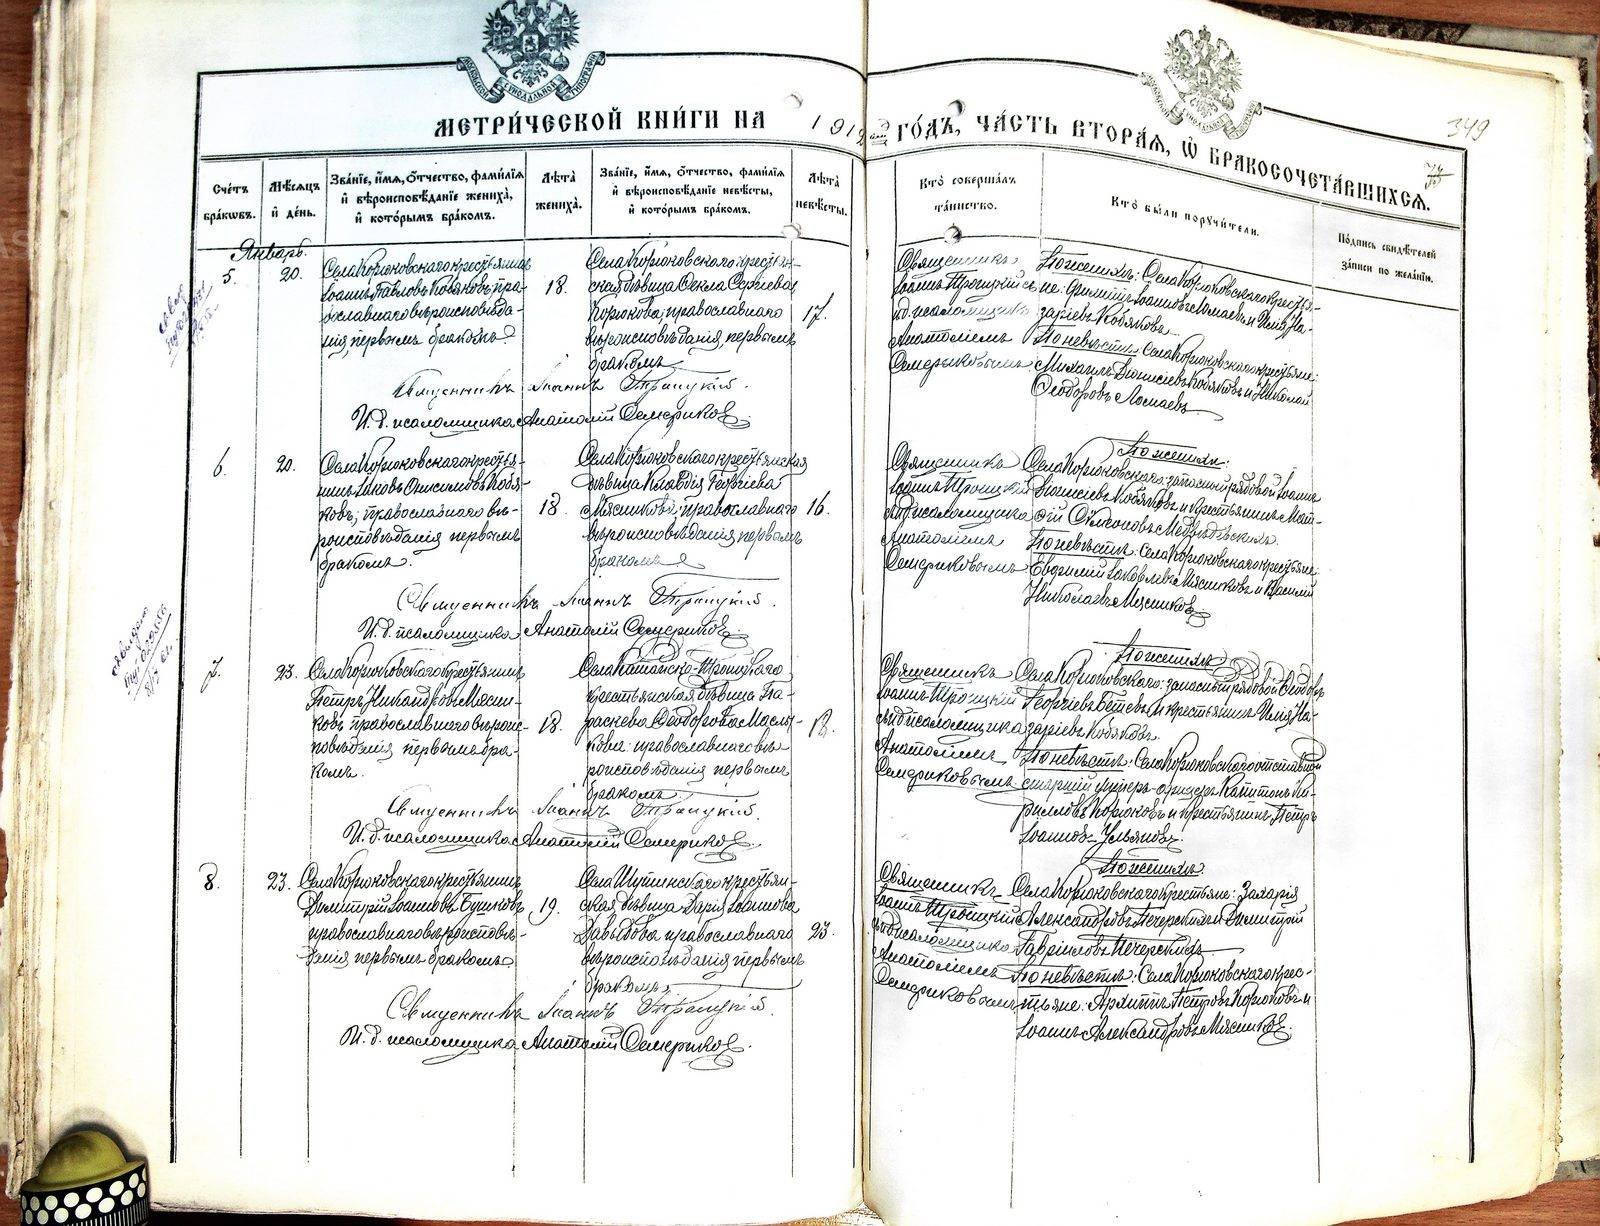 МЕТРИ́ЧЕСКОЙ КНИ́ГИ НА 1912 ГО́ДЪ, ЧА́СТЬ ВТОРА́Я, Ѡ БРАКОСОЧЕТА́ВШИХСЯ.
349
Сче́тъ бра́кѡвъ.
Мѣ́сяцъ и де́нь.
Зва́ніе, и́мя, о́тчество, фами́лія и вѣроисповѣ́даніе жениха̀, и кото́рымъ бра́комъ.
Лѣ́та жениха̀.
Зва́ніе, и́мя, о́тчество, фами́лія и вѣроисповѣ́даніе невѣ́сты, и кото́рымъ бра́комъ.
Лѣ́та невѣ́сты.
Кто̀ соверша́лъ та́инство.
Кто̀ бы́ли поручи́тели.
По́дпись свидѣ́телей за́писи по жела́нію.
Январь.
5.
20.
Села Корюковскаго крестьянинъ
Іоаннъ Павловъ Кобяковъ, пра-
вославнаго вѣроисповѣда-
нія, первымъ бракомъ
18.
Села Корюковскаго крестьян-
ская дѣвица Ѳекла Сергіева
Корюкова, православнаго
вѣроисповѣданія, первымъ
бракомъ
17.
Священникъ
Іоаннъ Троицкій съ
и.д. псаломщика
Анатоліемъ
Семериковымъ
По женихѣ: Села Корюковскаго крестья-
не: Филиппъ Іоанновъ Ломаевъ и Илія На-
заріевъ Кобяковъ.
По невѣстѣ: Села Корюковскаго крестьяне:
Михаилъ Діонисіевъ Кобяковъ и Николай
Ѳеодоровъ Ломаевъ
Священникъ Іоаннъ Троицкій.
И. д. псаломщика Анатолій Семериковъ.
6.
20.
Села Корюковскаго крестья-
нинъ Іаковъ Онисимовъ Кобя-
ковъ, православнаго вѣ-
роисповѣданія первымъ
бракомъ.
18.
Села Корюковскаго крестьянская
дѣвица Клавдія Георгіева
Мясникова, православнаго
вѣроисповѣданія первымъ
бракомъ
16.
Священникъ
Іоаннъ Троицкій
съ и.д. псаломщика
Анатоліемъ
Семериковымъ
По женихѣ:
Села Корюковскаго: запасный рядовой Іоаннъ
Діонисіевъ Кобяковъ и крестьянинъ Мат-
ѳій Сѵмеоновъ Медвѣдевскихъ.
По невѣстѣ: Села Корюковскаго крестьяне:
Евфимій Іаковлевъ Мясниковъ и Василій
Николаевъ Мясниковъ
Священникъ Іоаннъ Троицкій.
И. д. псаломщика Анатолій Семериковъ.
7.
23.
Села Корюковскаго крестьянинъ
Петръ Никандровъ Мясни-
ковъ православнаго вѣроис-
повѣданія первымъ бра-
комъ.
18.
Села Катайско-Троицкаго
крестьянская дѣвица Па-
раскева Ѳеодорова Маслю-
кова: православнаго вѣ-
роисповѣданія первымъ
бракомъ.
18.
Священникъ
Іоаннъ Троицкій
съ и.д. псаломщика
Анатоліемъ
Семериковымъ
По женихѣ
Села Корюковскаго: запасный рядовой Ѳеодоръ
Георгіевъ Бетевъ и крестьянинъ Илія На-
заріевъ Кобяковъ.
По невѣстѣ: Села Корюковскаго отставной
старшій унтеръ-офицеръ Капитонъ Ки-
рилловъ Корюковъ и крестьянинъ Петръ
Іоанновъ Ульяновъ.
Священникъ Іоаннъ Троицкій.
И. д. псаломщика Анатолій Семериковъ.
8.
23.
Села Корюковскаго крестьянинъ
Димитрій Іоанновъ Бушковъ
православнаго вѣроисповѣ-
данія первымъ бракомъ
19.
Села Шутинскаго крестьян-
ская дѣвица Дарія Іоаннова
Давыдова православнаго
вѣроисповѣданія первымъ
бракомъ.
23.
Священникъ
Іоаннъ Троицкій
съ и.д. псаломщика
Анатоліемъ
Семериковымъ
По женихѣ
Села Корюковскаго крестьяне: Захарія
Александровъ Печерскихъ и Димитрій
Гавріиловъ Печерскихъ
По невѣстѣ: Села Корюковскаго крес-
тьяне: Архиппъ Петровъ Корюковъ и
Іоаннъ Александровъ Мясниковъ.
Священникъ Іоаннъ Троицкій.
И. д. псаломщика Анатолій Семериковъ.